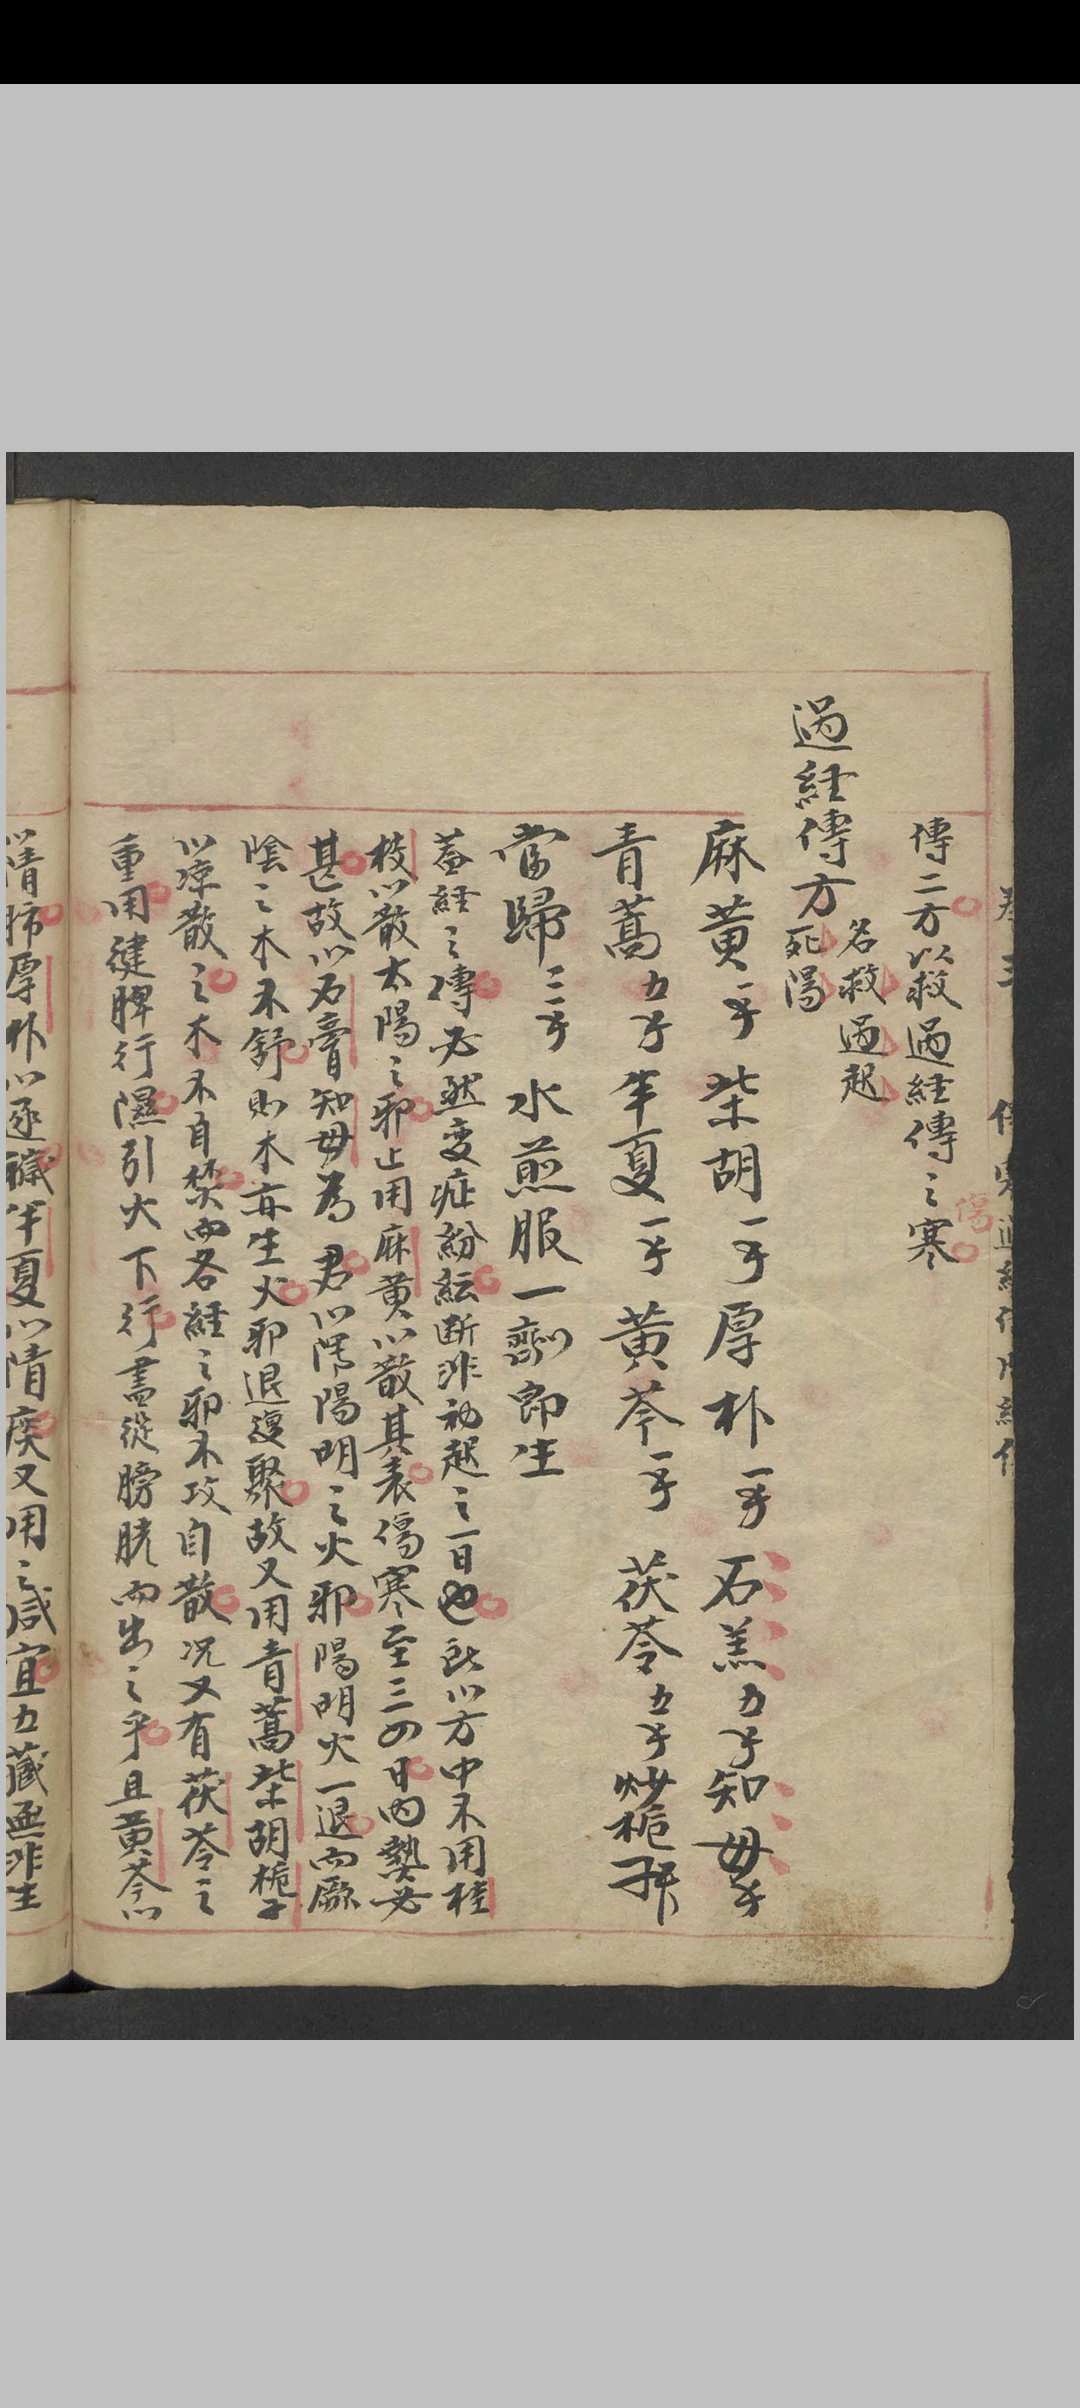 傳二方以救過経傳之寒
傷
過経傳方
名救過起
死陽
麻黃一手柴胡一手厚朴一手石羔五手知母手
青蒿五手半夏一手黃芩一手茯苓五手炒栀
當歸三手水煎服一劑即生
蓋経之傳必然变症紛紜断非初起之一日也所以方中不用桂
枝以散太陽之邪止用麻黃以散其表傷寒至三四日內熱必
甚故以石膏知母為君以陽明之火邪陽明火一退而厥
陰之木不舒則木亦生火邪退復聚故又用青蒿柴胡栀子
以凉散之木不自焚而各経之邪不攻自散况又有茯苓之
重用健脾行濕引火下行盡從膀胱而出之乎且黃芩以
清肺厚朴以逐穢半夏以清痰又用之咸宜五藏無非生